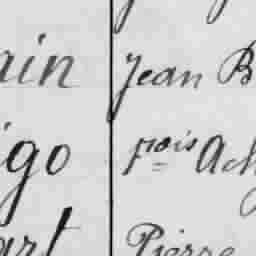 ain Jean B
igo fçois Ach
art Pierre